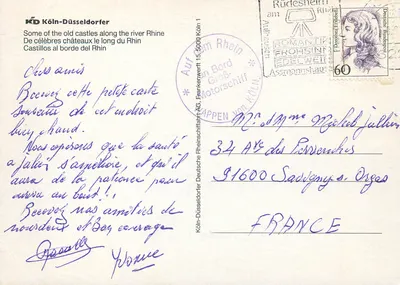 KD Köln-Düsseldorfer
Some of the old castles along the river Rhine
De célèbres châteaux le long du Rhin
Castillos al borde del Rhin
Chers amis
Recevez cette petite carte
souvenir de cet endroit
bien chaud.
Nous espérons que la santé
à Julien s'améliore, et qu'il
aura de la patience pour
au but!!
Recevez nos amitiés de
nous deux et bon courage
Yvonne
Köln-Düsseldorfer Deutsche Rheinschiffahrt AG, Frankenwerft 15, 5000 Köln 1
Auf dem Rhein
an Bord
Motorschiff
Rüdesheim
60
Mr et Mme Michel
34 Av. des
91600 Savigny s. Orges
FRANCE